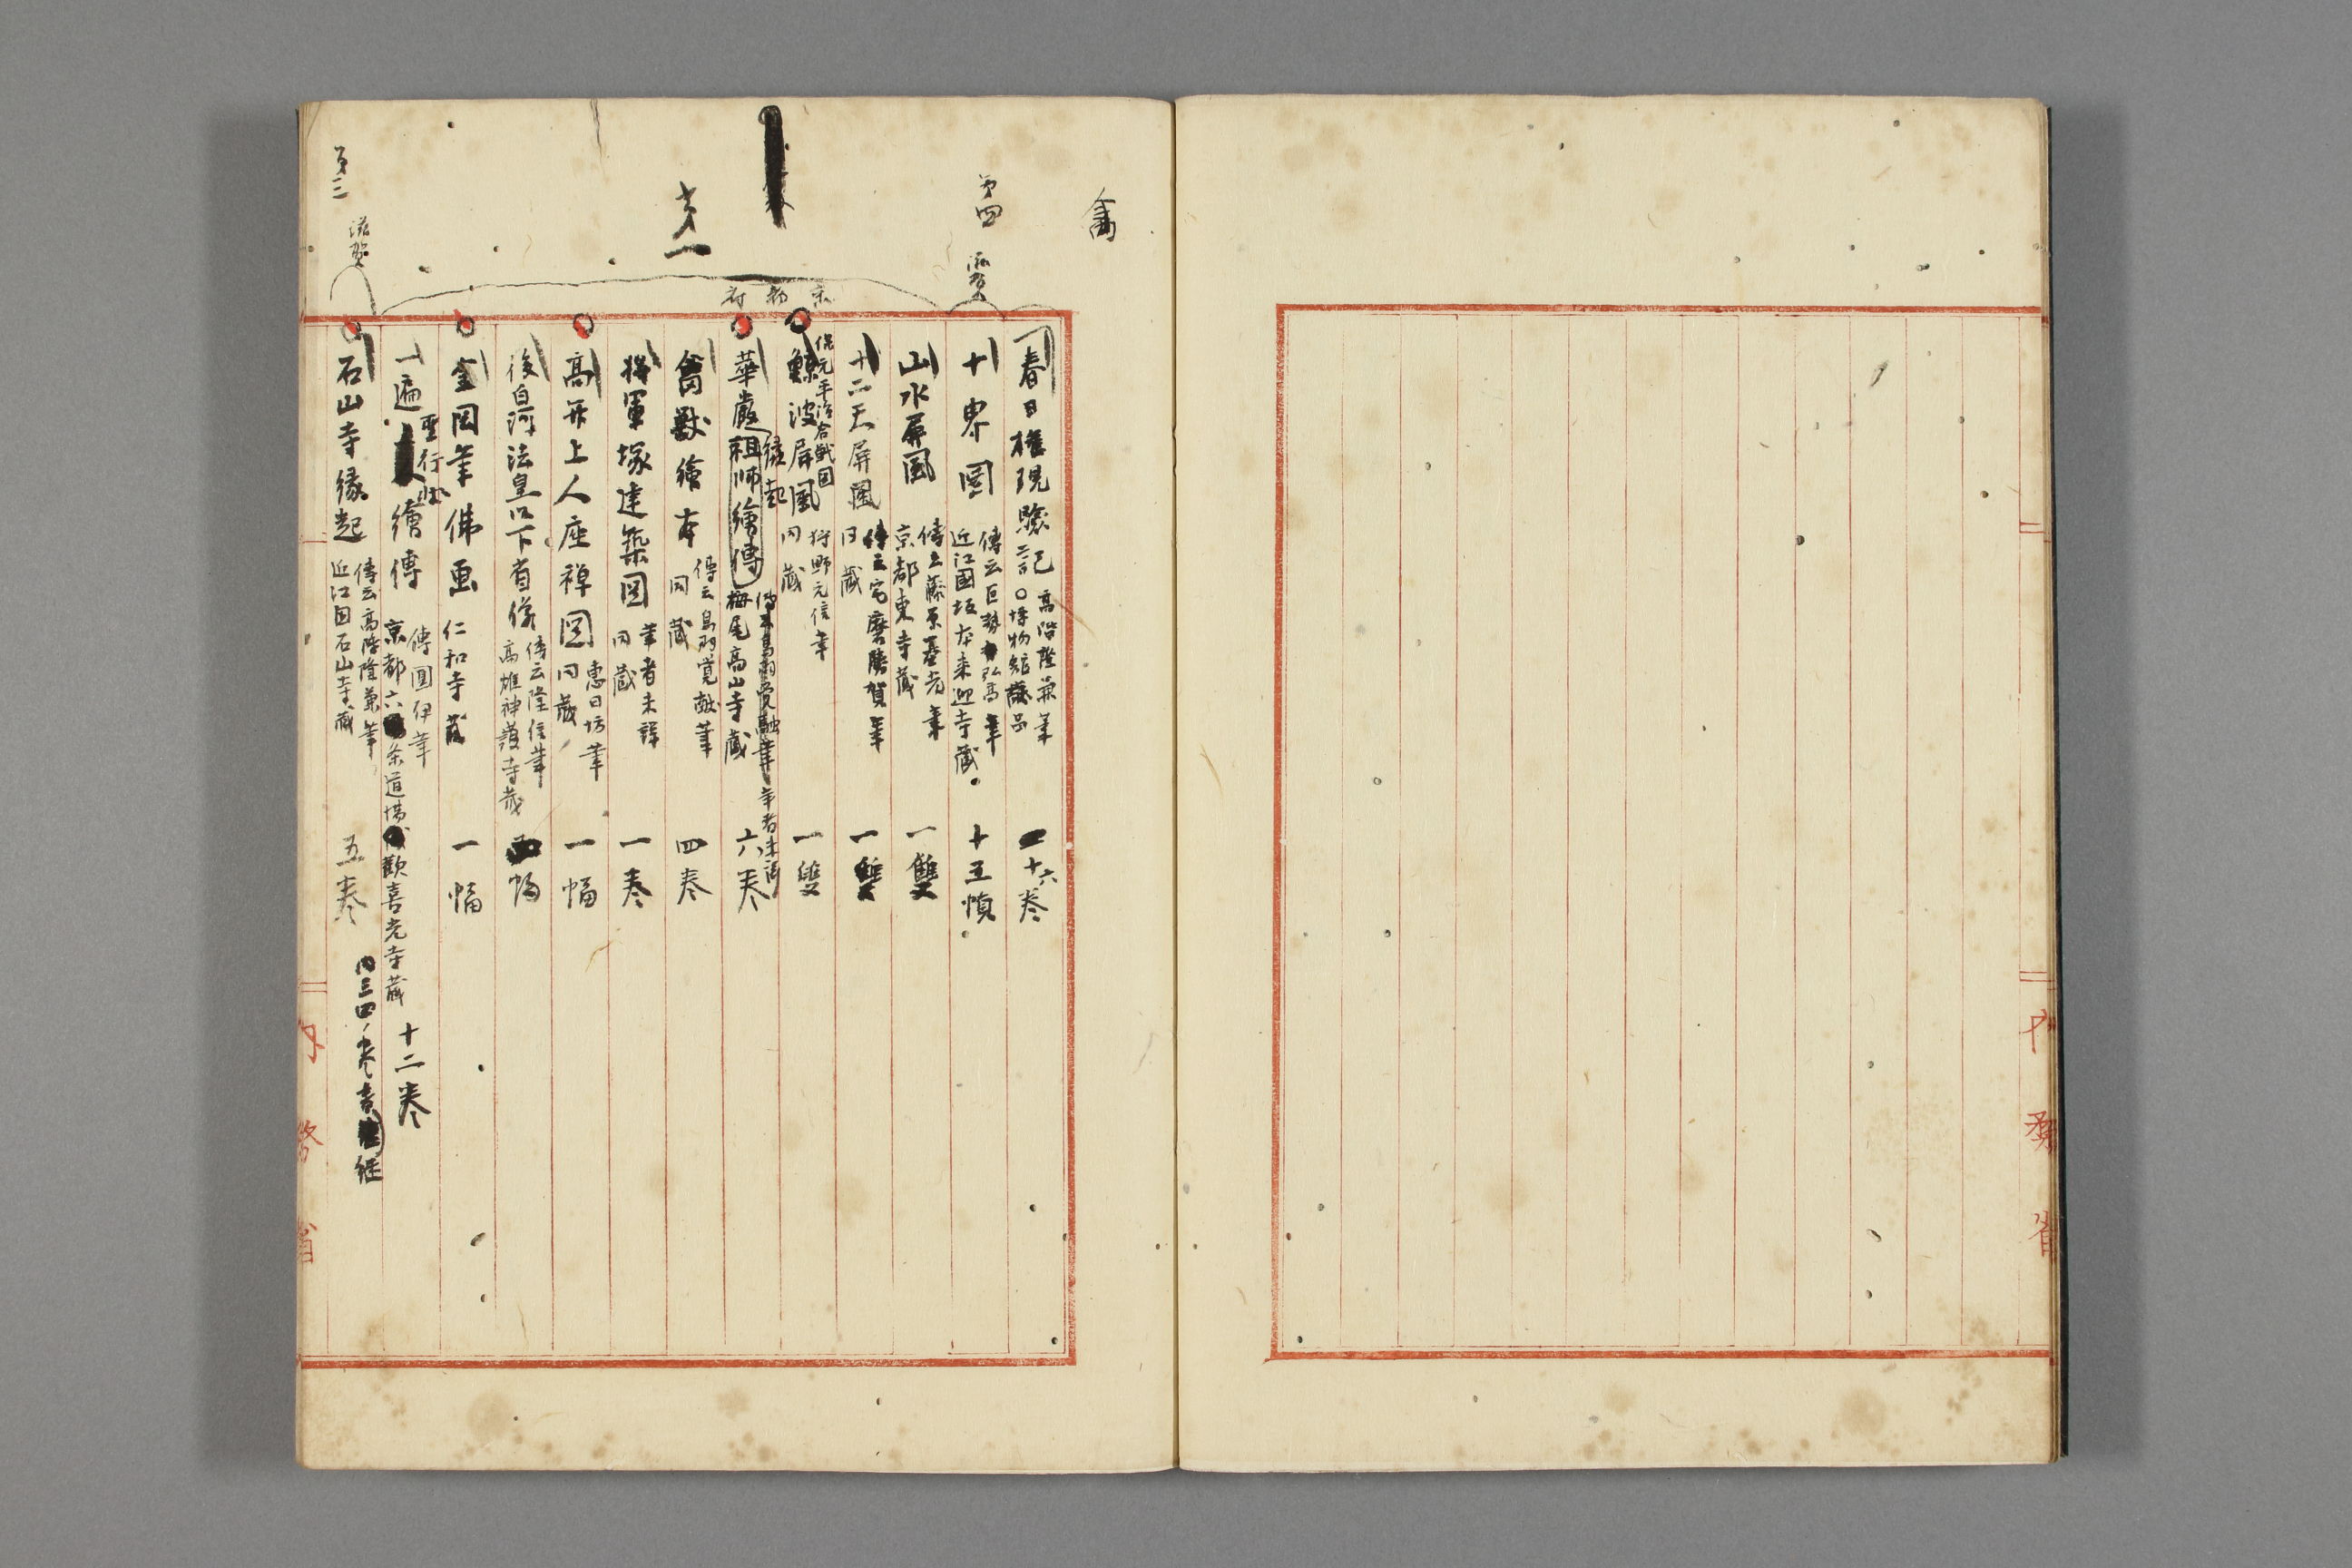 禽
第四
滋賀
第一
京都府
第三
滋賀
春日権現験記
高階隆兼筆
博物館蔵品
二十六巻
十界図
傳云巨勢弘高筆
近江國坂本来迎寺蔵
十五幀
山水屏風
傳云藤原基光筆
京都東寺蔵
一雙
十二天屏風
傳云宅磨勝賀筆
同蔵
一雙
保元平治合戦図
鯨波屏風
狩野元信筆
同蔵
一雙
縁起
華嚴祖师繪傳
筆者未詳
栂尾高山寺蔵
六巻
禽獣繪本
傳云鳥羽覚猷筆
同蔵
四巻
将軍塚建築図
筆者未詳
同蔵
一巻
高弁上人座禅図
恵日坊筆
同蔵
一幅
後白河法皇以下肖像
傳云隆信筆
高雄神護寺蔵
幅
金岡筆佛画
仁和寺蔵
一幅
聖行状
一遍繪傳
傳圓伊筆
京都六条道場歓喜光寺蔵
十二巻
石山寺縁起
傳云高階隆兼筆
近江国石山寺蔵
五巻
内三四巻
継
内務省
内務省